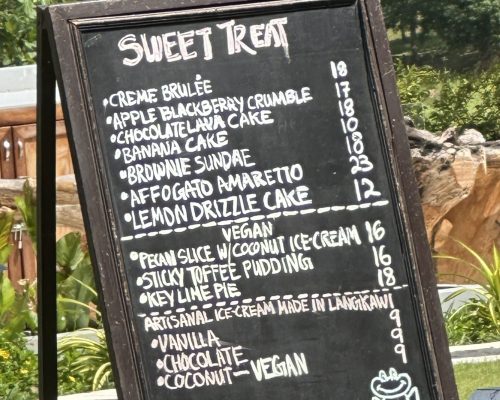 SWEET TREAT
•CREME BRULÉE 18
•APPLE BLACKBERRY CRUMBLE 17
•CHOCOLATE LAVA CAKE 18
•BANANA CAKE 10
•BROWNIE SUNDAE 18
•AFFOGATO AMARETTO 23
•LEMON DRIZZLE CAKE 12
VEGAN
•PECAN SLICE W/COCONUT ICE-CREAM 16
•STICKY TOFFEE PUDDING 16
•KEY LIME PIE 18
ARTISANAL ICE-CREAM MADE IN LANGKAWI
•VANILLA 9
•CHOCOLATE 9
•COCONUT - VEGAN 9